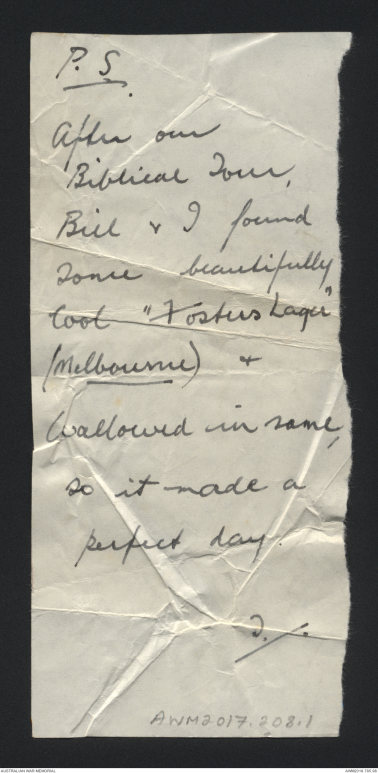 P.S.
After our
Biblical Tour,
Bill & I found
some beautifully
cool "Fosters Lager"
(Melbourne) &
wallowed in same,
so it made a
perfect day.
AWM2017.208.1
AUSTRALIAN WAR MEMORIAL